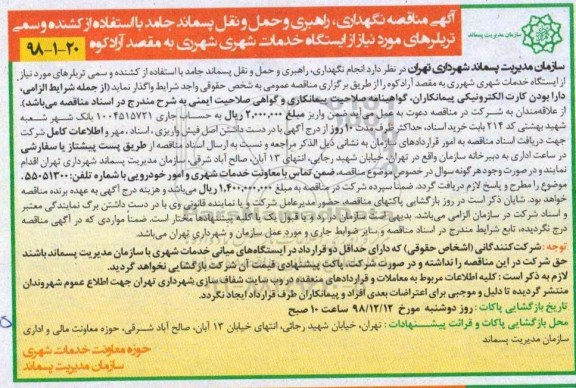 آگهی مناقصه نگهداری، راهبری و حمل و نقل پسماند جامد با استفاده از کشنده و سمی
تریلرهای مورد نیاز از ایستگاه خدمات شهری شهرری به مقصد آرادکوه ۲۰-۱-۹۸
سازمان مدیریت پسماند
سازمان مدیریت پسماند شهرداری تهران در نظر دارد انجام نگهداری، راهبری و حمل و نقل پسماند جامد با استفاده از کشنده و سمی تریلرهای مورد نیاز
از ایستگاه خدمات شهری شهرری به مقصد آرادکوه را از طریق برگزاری مناقصه عمومی به شخص حقوقی واجد شرایط واگذار نماید (از جمله شرایط الزامی،
دارا بودن کارت الکترونیکی پیمانکاران، گواهینامه صلاحیت پیمانکاری و گواهی صلاحیت ایمنی به شرح مندرج در اسناد مناقصه می‌باشد).
از علاقمندان به شرکت در مناقصه دعوت به عمل می‌آید ضمن واریز مبلغ ۲,۰۰۰,۰۰۰ ریال به حساب جاری ۱۰۰۴۵۱۵۷۲۱ بانک شهر شعبه
شهید بهشتی کد ۲۱۴ بابت خرید اسناد، حداکثر ظرف مدت ۱۰ روز از درج آگهی با در دست داشتن اصل فیش واریزی، اسناد، مهر و اطلاعات کامل شرکت
جهت دریافت اسناد مناقصه به امور قراردادهای سازمان به نشانی ذیل الذکر مراجعه و نسبت به ارسال اسناد مناقصه از طریق پست پیشتاز یا سفارشی
در ساعت اداری به دبیرخانه سازمان واقع در تهران، خیابان شهید رجایی، انتهای ۱۳ آبان، صالح آباد شرقی، سازمان مدیریت پسماند شهرداری تهران اقدام
نمایند و در صورت وجود هرگونه سوال در خصوص موضوع مناقصه، ضمن تماس با معاونت خدمات شهری و امور خودرویی با شماره تلفن: ۵۵۰۵۱۳۰۰،
موضوع را مطرح و پاسخ لازم دریافت گردد. ضمناً سپرده شرکت در مناقصه به مبلغ ۱,۴۰۰,۰۰۰,۰۰۰ ریال می‌باشد و هزینه درج آگهی به عهده برنده مناقصه
خواهد بود. شایان ذکر است در روز بازگشایی پاکتهای مناقصه، حضور مدیرعامل شرکت و یا نماینده قانونی وی با در دست داشتن برگ نمایندگی معتبر
و اسناد شرکت در سازمان الزامی می‌باشد. بدیهی است سازمان در رد یا قبول یک یا کلیه پیشنهادات مختار است. ضمناً مواردی که در آگهی مناقصه
درج نگردیده، تابع شرایط مندرج در اسناد مناقصه و سایر ضوابط جاری و مورد عمل سازمان و شهرداری تهران می‌باشد.
توجه: شرکت‌کنندگانی (اشخاص حقوقی) که دارای حداقل دو قرارداد در ایستگاه‌های میانی خدمات شهری با سازمان مدیریت پسماند باشند
حق شرکت در این مناقصه را نداشته و در صورت شرکت، پاکت پیشنهادی قیمت آن شرکت بازگشایی نخواهد گردید.
لازم به ذکر است: کلیه اطلاعات مربوط به معاملات و قراردادهای منعقده بر روی سایت شفاف‌سازی شهرداری تهران جهت اطلاع عموم شهروندان
منتشر گردیده تا دلیل و موجبی برای اعتراضات بعدی افراد و پیمانکاران طرف قرارداد ایجاد نگردد.
تاریخ بازگشایی پاکات: روز دوشنبه مورخ ۹۸/۱۲/۱۲ ساعت ۱۰ صبح
محل بازگشایی پاکات و قرائت پیشنهادات: تهران، خیابان شهید رجائی، انتهای خیابان ۱۳ آبان، صالح آباد شرقی، حوزه معاونت مالی و اداری
سازمان مدیریت پسماند
حوزه معاونت خدمات شهری
سازمان مدیریت پسماند